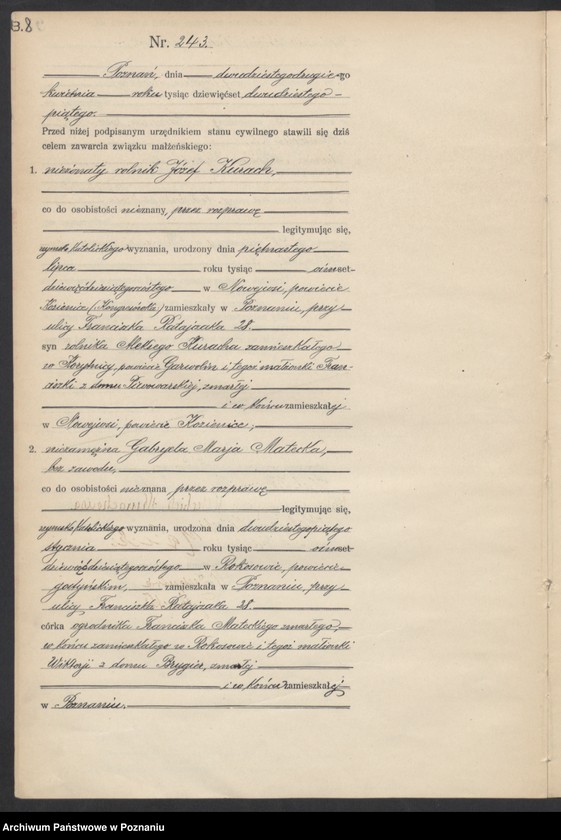 B.8
Nr. 243.
Poznań, dnia dwudziestegodrugiego
kwietnia roku tysiąc dziewięćset dwudziestego-
piątego.
Przed niżej podpisanym urzędnikiem stanu cywilnego stawili się dziś
celem zawarcia związku małżeńskiego:
1. nieżonaty rolnik Józef Kurach,
co do osobistości nieznany, przez rozprawę
legitymując się,
rzymsko, katolickiego wyznania, urodzony dnia piętnastego
lipca roku tysiąc ośmset
w Nowejwsi, powiecie
Kozienice (Kongresówka) zamieszkały w Poznaniu, przy
ulicy Franciszka Ratajczaka 28.
syn rolnika Kuracha zamieszkałego
w powiat Garwolin i tegoż małżonki Fran-
ciszki z domu Piwowarskiej, zmarłej
i w końcu zamieszkałej
w Nowejwsi, powiecie Kozienice,
2. niezamężna Gabryela Marja Matecka,
bez zawodu,
co do osobistości nieznana, przez rozprawę
legitymując się,
rzymsko, katolickiego wyznania, urodzona dnia dwudziestegopiątego
stycznia roku tysiąc ośmset
w Rokosowie, powiecie
gostyńskim, zamieszkała w Poznaniu, przy
ulicy Franciszka Ratajczaka 28.
córka ogrodnika Franciszka Mateckiego zmarłego,
w końcu zamieszkałego w Rokosowie i tegoż małżonki
Wiktorji z domu Brygier, zmarłej
i w końcu zamieszkałej
w Poznaniu.
Archiwum Państwowe w Poznaniu